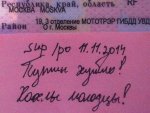 Республика, край, область
RF
МОСКВА MOSKVA
19, 3 отделение МОТОТРЭР ГИБДД УВД
Район
О г. Москвы
11.11.2014
Путин
Хохлы молодцы!